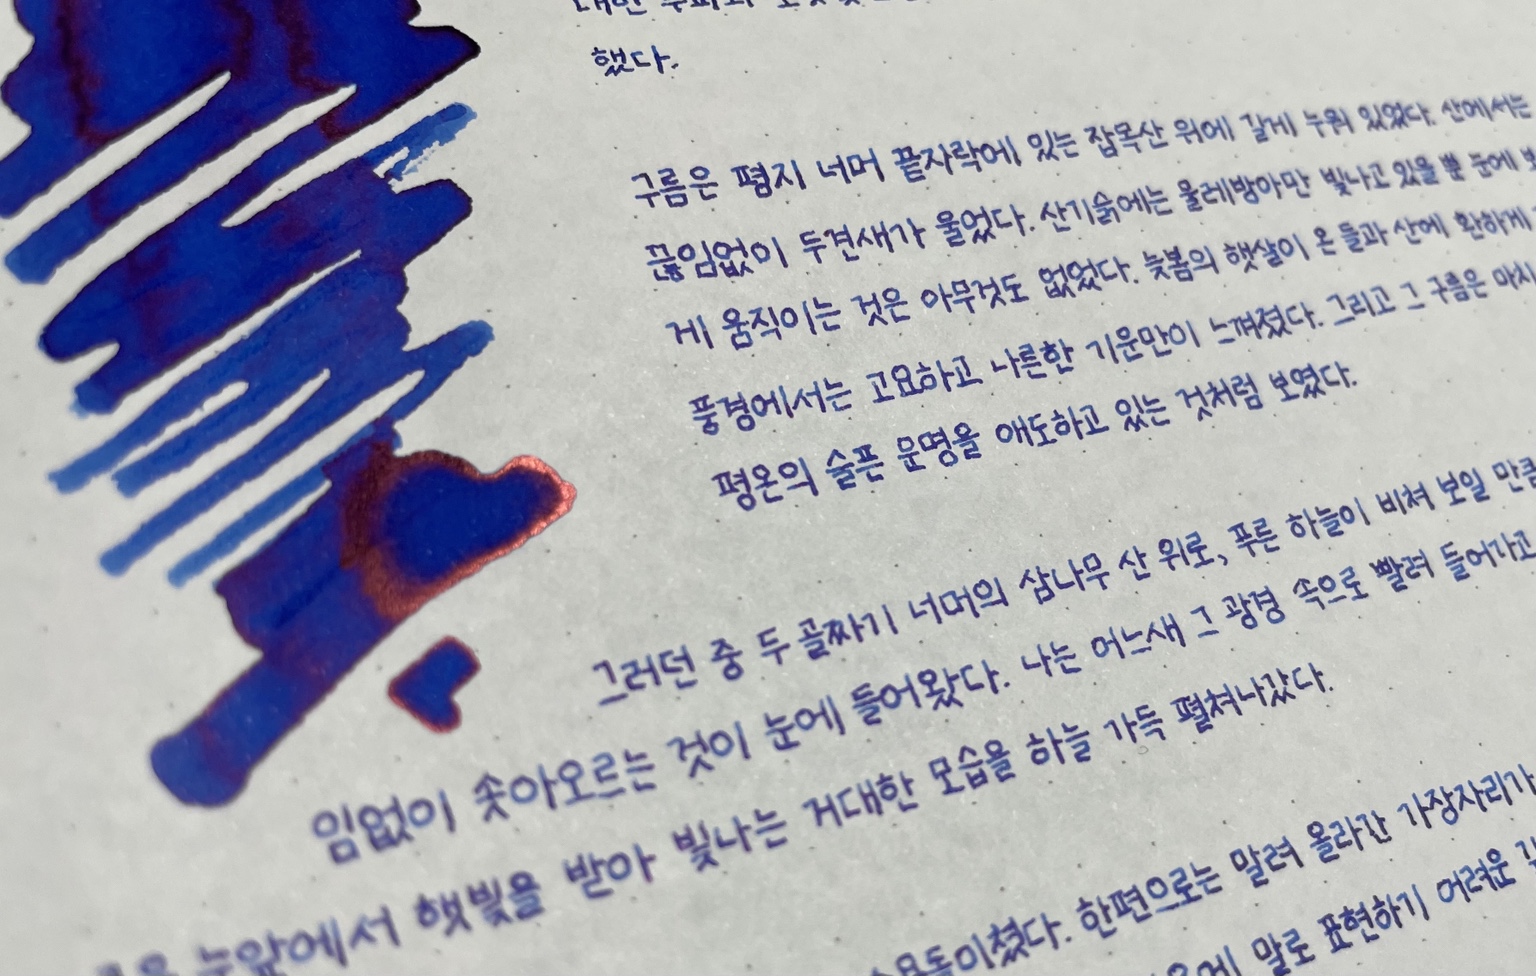 했다.
구름은 평지 너머 끝자락에 있는 잡목산 위에 길게 누워 있었다. 산에서는
끊임없이 두견새가 울었다. 산기슭에는 물레방아만 빛나고 있을 뿐 눈에
게 움직이는 것은 아무것도 없었다. 늦봄의 햇살이 온 들과 산에 환하게
풍경에서는 고요하고 나른한 기운만이 느껴졌다. 그리고 그 구름은 마치
평온의 슬픈 운명을 애도하고 있는 것처럼 보였다.
그러던 중 두 골짜기 너머의 삼나무 산 위로, 푸른 하늘이 비쳐 보일 만큼
임없이 솟아오르는 것이 눈에 들어왔다. 나는 어느새 그 광경 속으로 빨려 들어가고
눈앞에서 햇빛을 받아 빛나는 거대한 모습을 하늘 가득 펼쳐나갔다.
한편으로는 말려 올라간 가장자리가
말로 표현하기 어려운